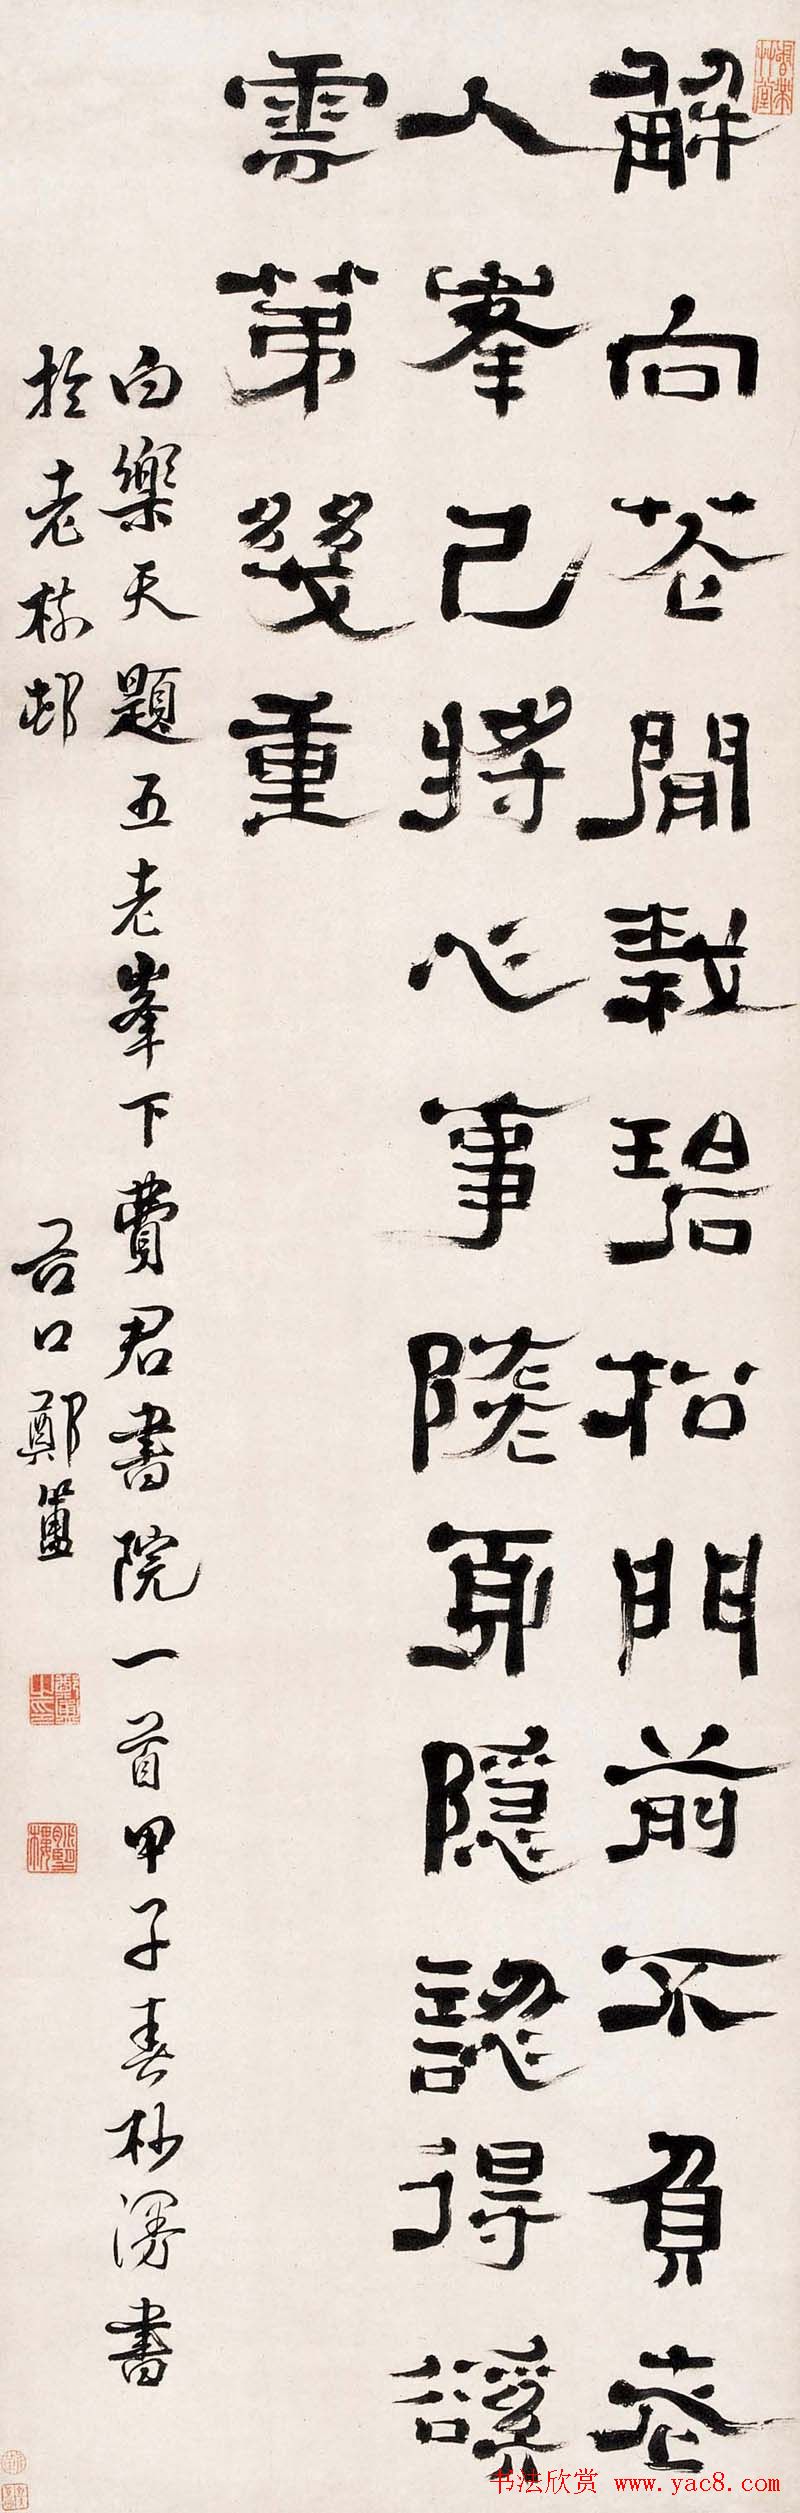 解向花間栽碧松門前不負老
人峯已將心事隨身隱認得谿
雲苐幾重
白樂天題五老峯下費君書院一首甲子春杪漫書
於老樹邨 谷口鄭簠
鄭簠之印
书法欣赏 www.yac8.com